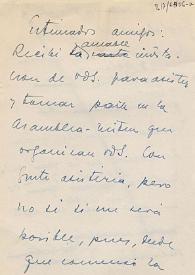 Estimados amigos:
Recibí la amable invita-
ción de vds. para asistir
y tomar parte en la
Asamblea-mitin que
organizan vds. Con
gusto asistiría, pero
no sé si me será
posible, pues, desde
que comenzó la